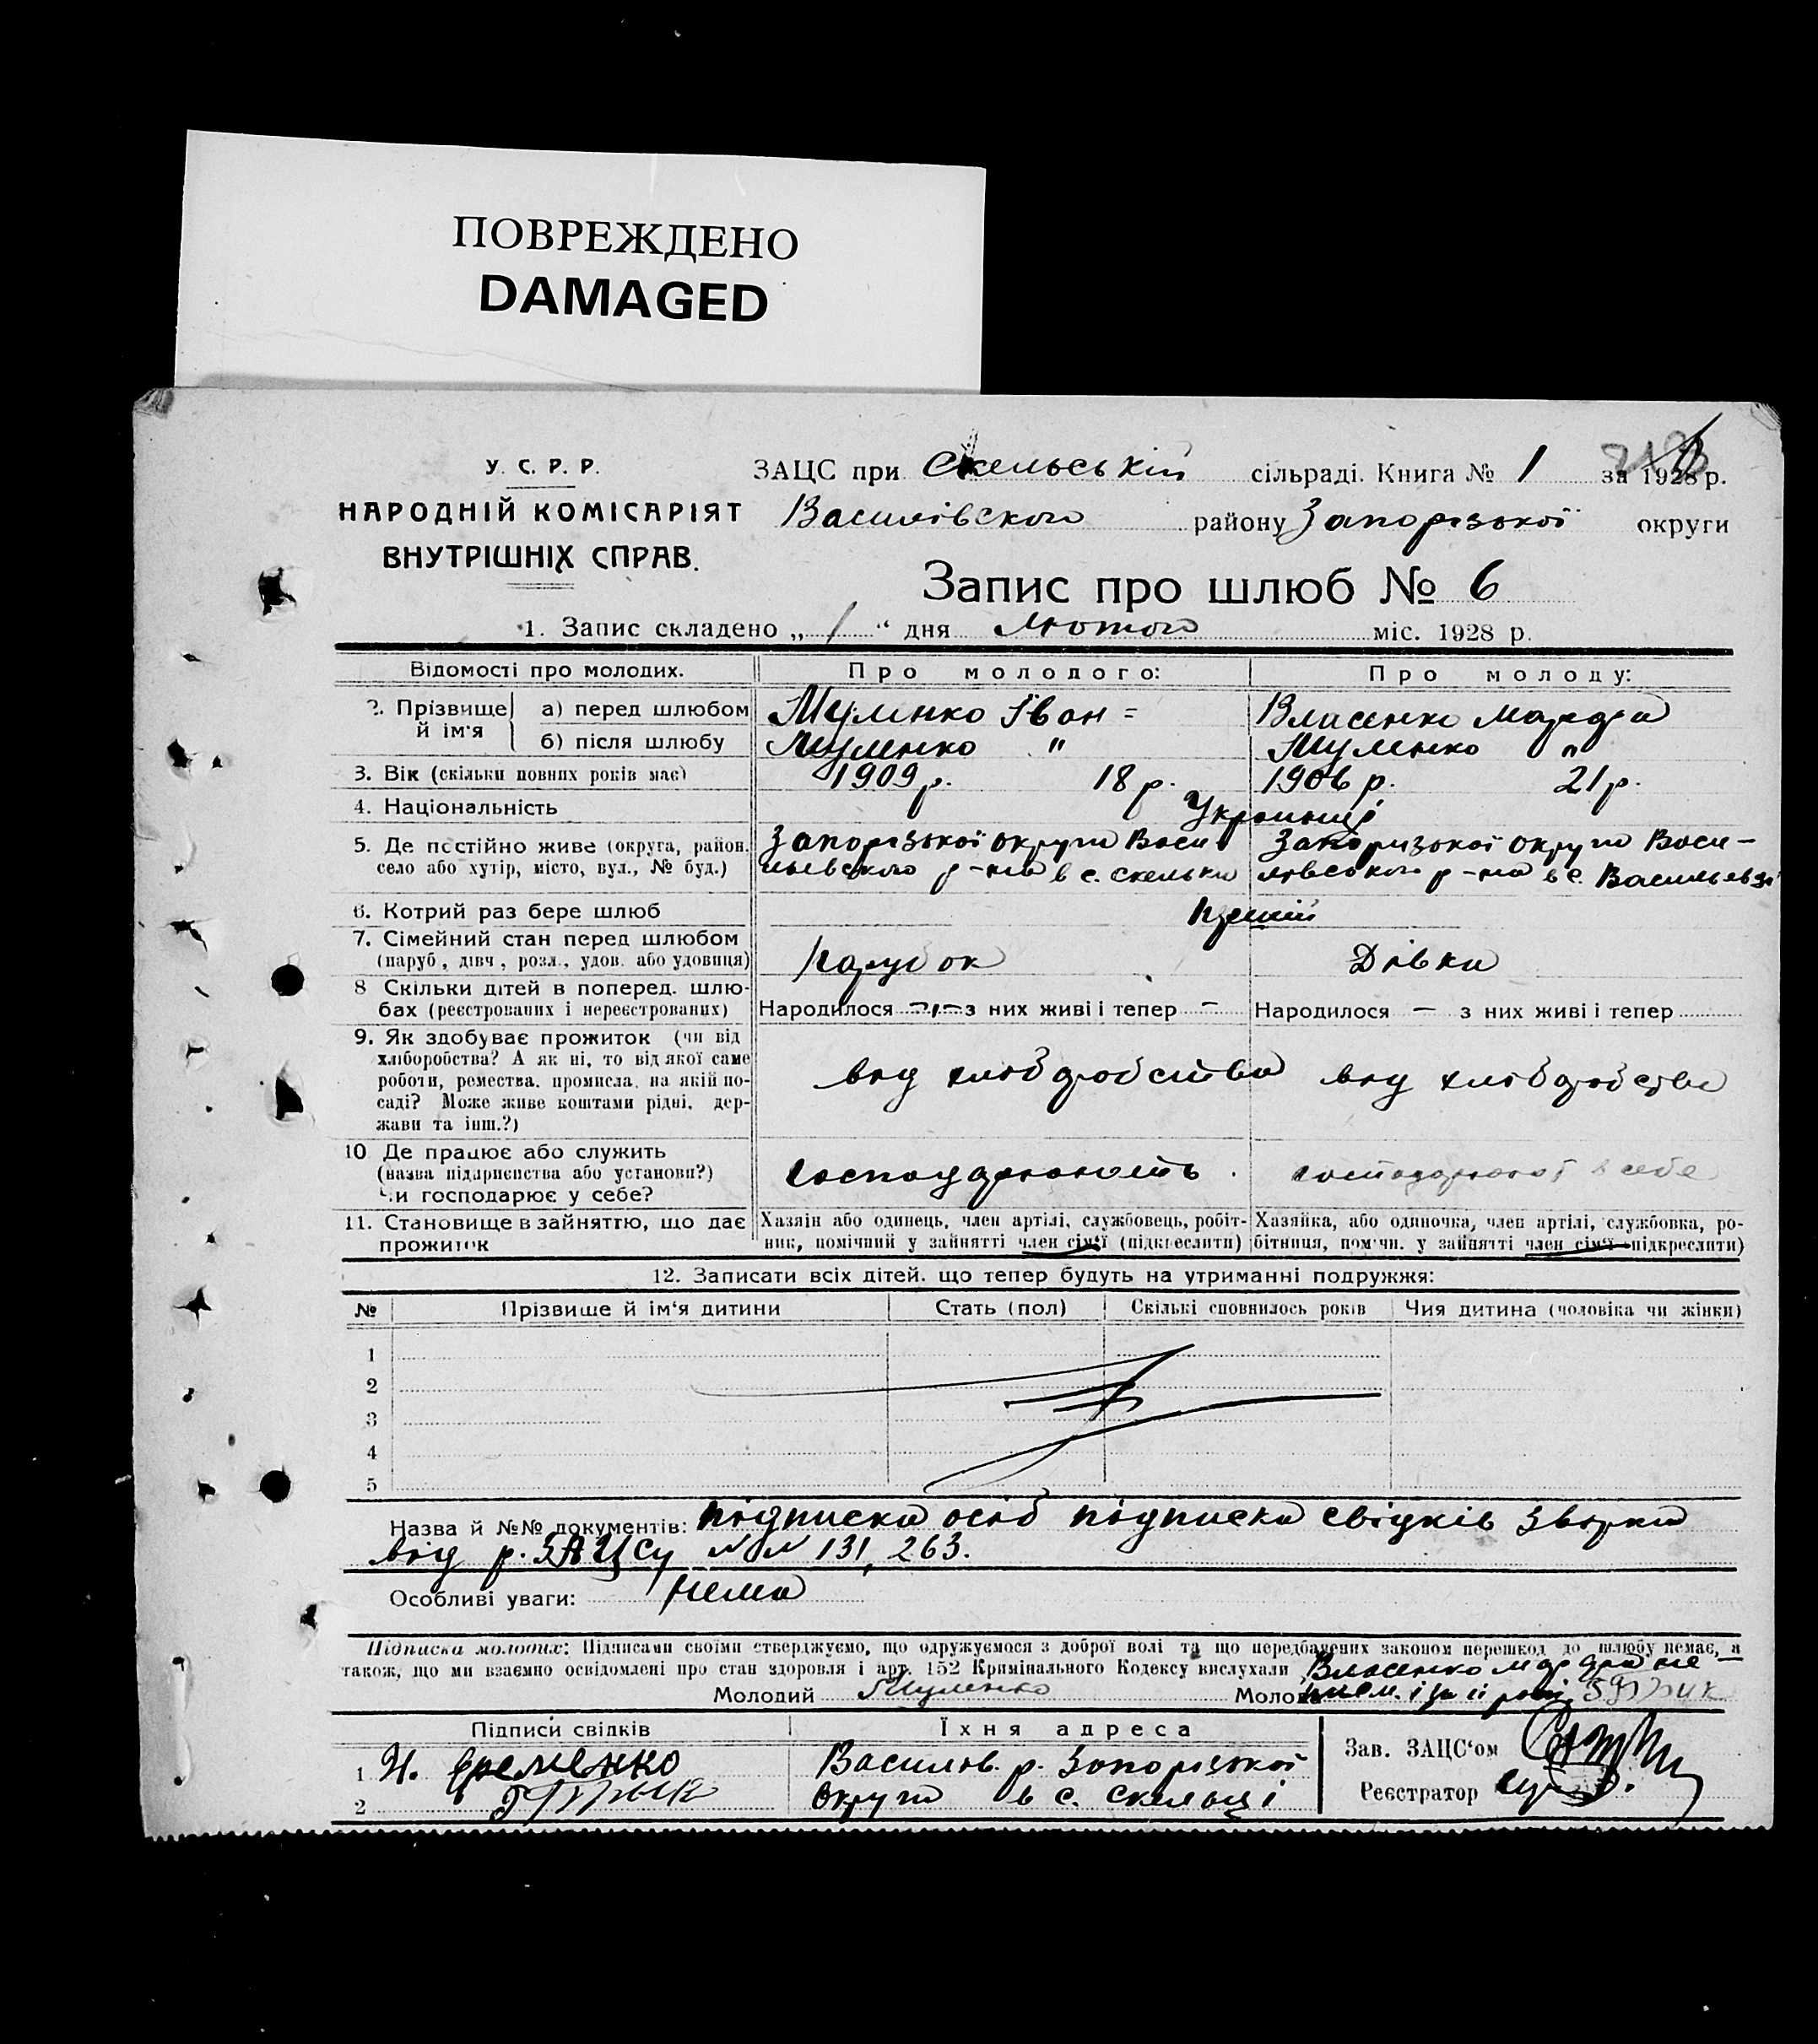 ПОВРЕЖДЕНО
DAMAGED
У. С. Р. Р.
НАРОДНІЙ КОМІСАРІЯТ
ВНУТРІШНІХ СПРАВ.
ЗАЦС при Скельській сільраді. Книга № 1 за 1928 р.
Василівского району Запорізької округи
Запис про шлюб № 6
1. Запис складено „ 1 “ дня Лютого міс. 1928 р.
Відомості про молодих. Про молодого: Про молоду:
2. Прізвище й ім'я а) перед шлюбом Муленко Іван = Власенко
б) після шлюбу Муленко " Муленко "
3. Вік (скільки повних років має) 1909 р. 18 р. 1906 р. 21 р.
4. Національність Українці
5. Де постійно живе (округа, район, Запорізької округи Васи Запоризької округи Васи-
село або хутір, місто, вул., № буд.) льевского р-на в с. Скельки лівського р-на в с. Васильевці
6. Котрий раз бере шлюб
7. Сімейний стан перед шлюбом
(паруб., дівч., розл., удов. або удовиця) Парубок Дівка
8 Скільки дітей в поперед. шлю-
бах (реєстрованих і нереєстрованих) Народилося — з них живі і тепер — Народилося — з них живі і тепер
9. Як здобуває прожиток (чи від
хліборобства? А як ні, то від якої саме
роботи, ремества, промисла, на якій по-
саді? Може живе коштами рідні, дер-
жави та інш.?)
від хліборобства від хліборобства
10 Де працює або служить
(назва підприємства або установи?)
Чи господарює у себе?
в себе
11. Становище в зайняттю, що дає Хазяїн або одинець, член артілі, службовець, робіт- Хазяйка, або одиночка, член артілі, службовка, ро-
прожиток ник, помічний у зайнятті член сім'ї (підкреслити) бітниця, помічн. у зайнятті член сім'ї підкреслити)
12. Записати всіх дітей, що тепер будуть на утриманні подружжя:
№ Прізвище й ім'я дитини Стать (пол) Скількі сповнилось років Чия дитина (чоловіка чи жінки)
1
2
3
4
5
Назва й №№ документів: підписка осіб підписка свідків
від р. ЗАЦСу NN 131, 263.
Особливі уваги: нема
Підписка молодих: Підписами своїми стверджуємо, що одружуємося з доброї волі та що передбачених законом перешкод до шлюбу немає, а
також, що ми взаємно освідомлені про стан здоровля і арт. 152 Кримінального Кодексу вислухали Власенко
Молодий Муленко Молода
Підписи свідків Їхня адреса
1 И. Еременко Василів. р. Запорізької
2 округи в с. Скельці
Зав. ЗАЦС'ом
Реєстратор